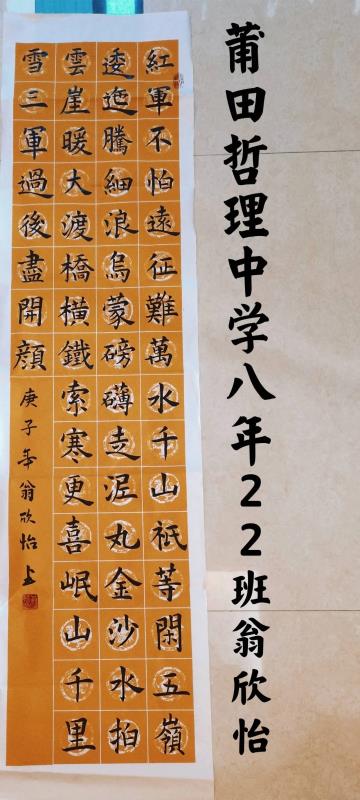 紅軍不怕遠征難萬水千山祇等閑五嶺
逶迤騰細浪烏蒙磅礴走泥丸金沙水拍
雲崖暖大渡橋橫鐵索寒更喜岷山千里
雪三軍過後盡開顏
庚子年翁欣怡上
莆田哲理中学八年22班翁欣怡